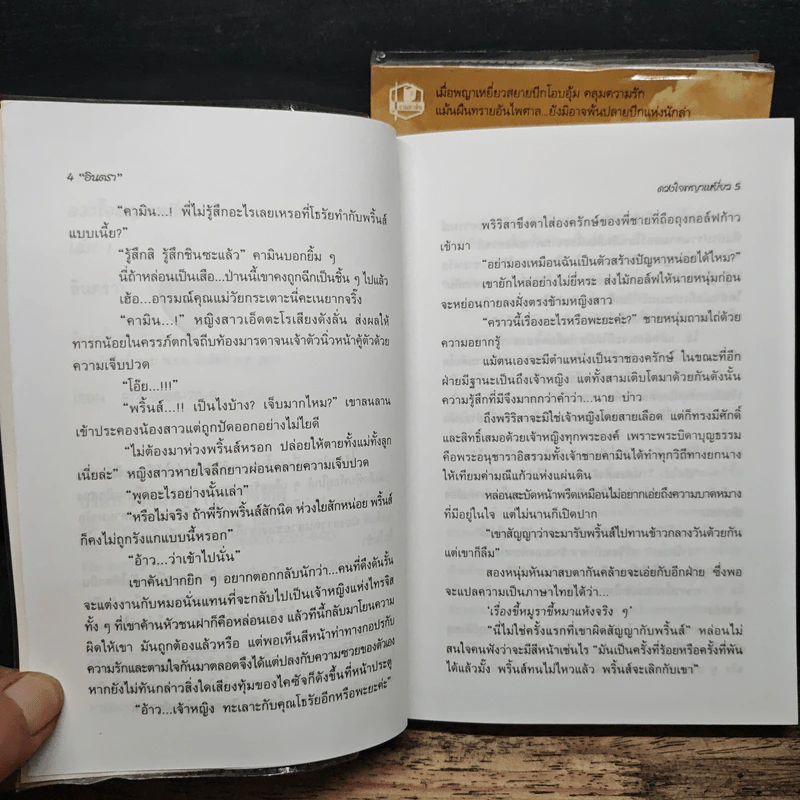 เมื่อพญาเหยี่ยวสยายปีกโอบอุ้ม คลุมความรัก
แม้นผืนทรายอันไพศาล...ยังมิอาจพ้นปลายปีกแห่งนักล่า
4 "อินตรา"
"คามิน...! พี่ไม่รู้สึกอะไรเลยเหรอที่โธรัยทำกับพริ้นส์
แบบเนี้ย?"
"รู้สึกสิ รู้สึกชินซะแล้ว" คามินบอกยิ้ม ๆ
นี่ถ้าหล่อนเป็นเสือ...ป่านนี้เขาคงถูกฉีกเป็นชิ้น ๆ ไปแล้ว
เฮ้อ...อารมณ์คุณแม่วัยกระเตาะนี่คะเนยากจริ๊ง
"คามิน...!" หญิงสาวเอ็ดตะโรเสียงดังลั่น ส่งผลให้
ทารกน้อยในครรภ์ตกใจถีบท้องมารดาจนเจ้าตัวนิ่วหน้าคู้ตัวด้วย
ความเจ็บปวด
"โอ๊ย...!!!"
"พริ้นส์...!! เป็นไงบ้าง? เจ็บมากไหม?" เขาลนลาน
เข้าประคองน้องสาวแต่ถูกปัดออกอย่างไม่ไยดี
"ไม่ต้องมาห่วงพริ้นส์หรอก ปล่อยให้ตายทั้งแม่ทั้งลูก
เนี่ยล่ะ" หญิงสาวหายใจลึกยาวผ่อนคลายความเจ็บปวด
"พูดอะไรอย่างนั้นเล่า"
"หรือไม่จริง ถ้าพี่รักพริ้นส์สักนิด ห่วงใยสักหน่อย พริ้นส์
ก็คงไม่ถูกรังแกแบบนี้หรอก"
"อ้าว...ว่าเข้าไปนั่น"
เขาคันปากยิก ๆ อยากตอกกลับนักว่า...คนที่ดึงดันรั้น
จะแต่งงานกับหมอนั่นแทนที่จะกลับไปเป็นเจ้าหญิงแห่งไทรจิส
ทั้ง ๆ ที่เขาค้านหัวชนฝาก็คือหล่อนเอง แล้วทีนี้กลับมาโยนความ
ผิดให้เขา มันถูกต้องแล้วหรือ แต่พอเห็นสีหน้าท่าทางกอปรกับ
ความรักและตามใจกันมาตลอดจึงได้แต่ปลงกับความซวยของตัวเอง
หากยังไม่ทันกล่าวสิ่งใดเสียงทุ้มของไคซัจก็ดังขึ้นที่หน้าประตู
"อ้าว...เจ้าหญิง ทะเลาะกับคุณโธรัยอีกหรือพะยะค่ะ"
ดวงใจพญาเหยี่ยว 5
พริริสาขึงตาใส่องครักษ์ของพี่ชายที่ถือถุงกอล์ฟก้าว
เข้ามา
"อย่ามองเหมือนฉันเป็นตัวสร้างปัญหาหน่อยได้ไหม?"
เขายักไหล่อย่างไม่ยี่หระ ส่งไม้กอล์ฟให้นายหนุ่มก่อน
จะหย่อนกายลงฝั่งตรงข้ามหญิงสาว
"คราวนี้เรื่องอะไรหรือพะยะค่ะ?" ชายหนุ่มถามไถ่ด้วย
ความอยากรู้
แม้ตนเองจะมีตำแหน่งเป็นราชองครักษ์ ในขณะที่อีก
ฝ่ายมีฐานะเป็นถึงเจ้าหญิง แต่ทั้งสามเติบโตมาด้วยกันดังนั้น
ความรู้สึกที่มีจึงมากกว่าคำว่า...นาย บ่าว
ถึงพริริสาจะมิใช่เจ้าหญิงโดยสายเลือด แต่ก็ทรงมีศักดิ์
และสิทธิ์เสมอด้วยเจ้าหญิงทุกพระองค์ เพราะพระบิดาบุญธรรม
คือพระอนุชาราอิสรวมทั้งเจ้าชายคามินได้ทำทุกวิถีทางยกนาง
ให้เทียมค่ามณีแก้วแห่งแผ่นดิน
หล่อนสะบัดหน้าพรืดเหมือนไม่อยากเอ่ยถึงความบาดหมาง
ที่มีอยู่ในใจ แต่ไม่นานก็เปิดปาก
"เขาสัญญาว่าจะมารับพริ้นส์ไปทานข้าวกลางวันด้วยกัน
แต่เขาก็ลืม"
สองหนุ่มหันมาสบตากันคล้ายจะเอ่ยกับอีกฝ่าย ซึ่งพอ
จะแปลความเป็นภาษาไทยได้ว่า...
'เรื่องขี้หมูราขี้หมาแห้งจริง ๆ'
"นี่ไม่ใช่ครั้งแรกที่เขาผิดสัญญากับพริ้นส์" หล่อนไม่
สนใจคนฟังว่าจะมีสีหน้าเช่นไร "มันเป็นครั้งที่ร้อยหรือครั้งที่พัน
ได้แล้วมั้ง พริ้นส์ทนไม่ไหวแล้ว พริ้นส์จะเลิกกับเขา"